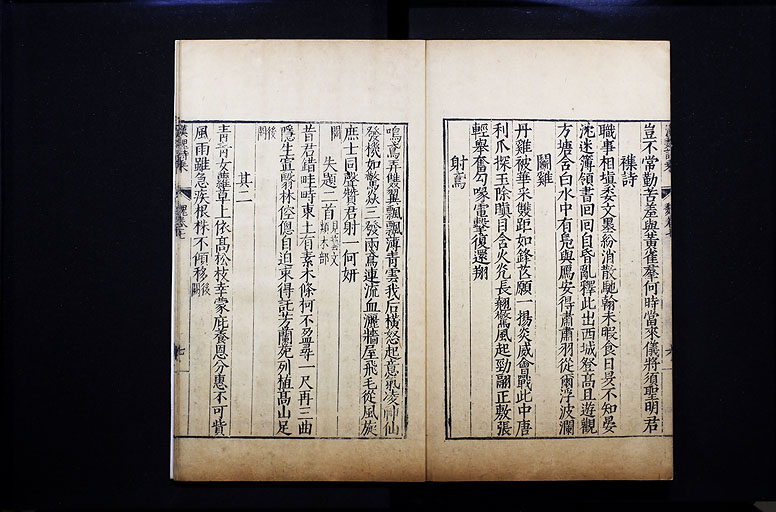 豈不常勤苦羞與黃雀羣何時當來儀將須聖明君
襍詩
職事相塡委文墨紛消散馳翰未暇食日昃不知晏
沈迷簿領書回回自昏亂釋此出西城登高且遊觀
方塘含白水中有鳧與鴈安得肅肅羽從爾浮波瀾
鬬雞
丹雞被華采雙距如鋒芒願一揚炎威會戰此中唐
利爪探玉除瞋目含火光長翹驚風起勁翮正敷張
輕舉奮勾喙電擊復還翔
射鳶
鳴鳶弄雙翼飄飄薄青雲我后橫怒起意氣凌神仙
發機如驚焱三發兩鳶連流血灑牆屋飛毛從風旋
庶士同聲贊君射一何妍
闕
失題二首見藝文類木部
昔君錯畦時東土有素木條柯不盈尋一尺再三曲
隱生寘翳林倥偬自迫束得託芳蘭苑列植高山足
後闕
其二
青青女蘿草上依高松枝幸蒙庇養恩分惠不可貲
風雨雖急疾根株不傾移後闕
漢魏詩乘
魏卷七
七